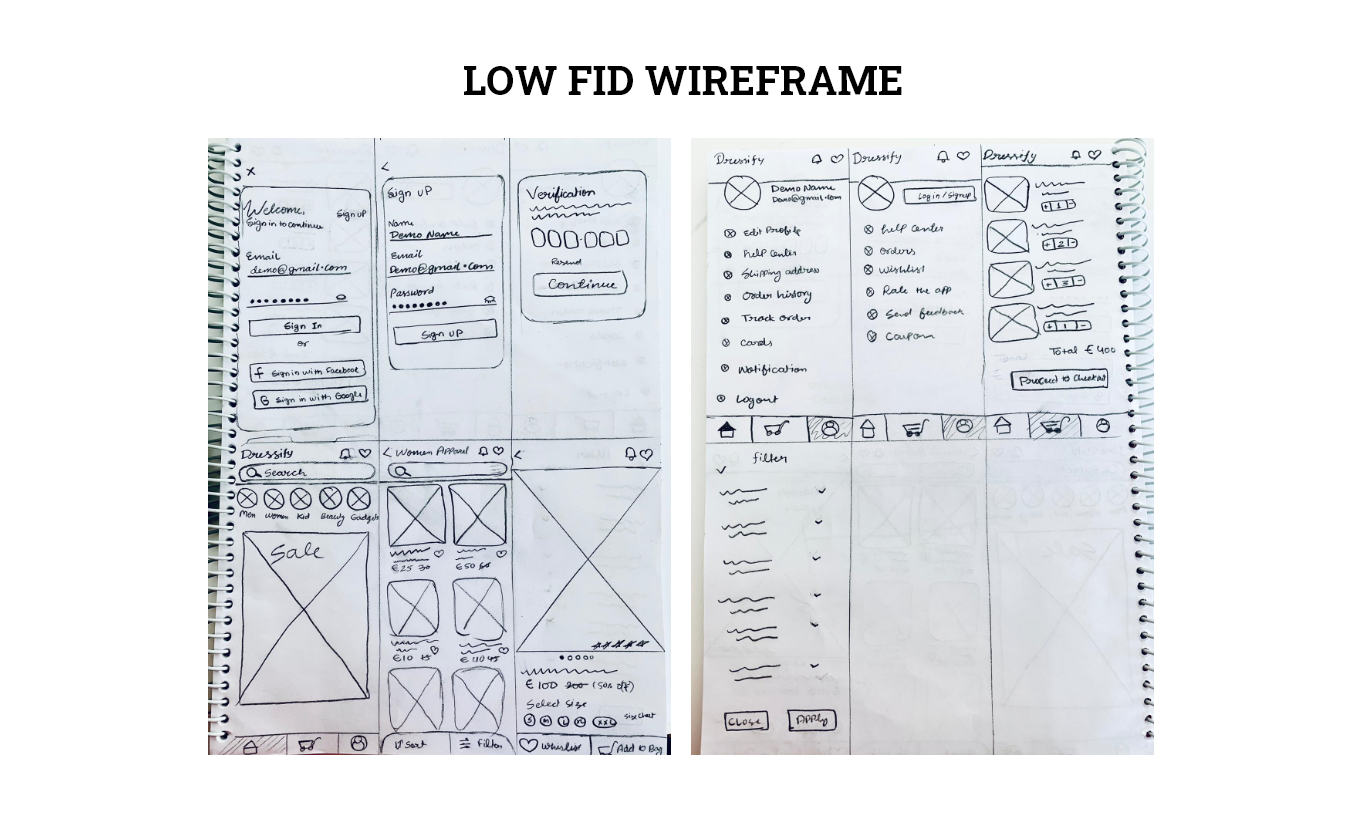 LOW FID WIREFRAME
Welcome,
Sign up
Sign in to continue
Email
demo@gmail.com
Sign In
or
f Sign in with Facebook
G Sign in with Google
Sign UP
Name
Demo Name
Email
Demo@gmail.com
Password
Sign UP
Verification
Resend
Continue
Dressify
Search
Men Women Kid Beauty Gadgets
Sale
< Women Apparel
€25 30
€10 15
Sort
Filter
€100 200 (50% off)
Select Size
S M L XL XXL
Size Chart
Whishlist
Add to Bag
Dressify
Demo Name
Demo@gmail.com
Edit Profile
Help Center
Shipping address
Order history
Track order
Cards
Notification
Logout
Dressify
Login / Signup
Help Center
orders
Wishlist
Rate the app
Send feedback
Coupon
Dressify
+ 1 -
+ 2 -
+ 3 -
+ 1 -
Total €400
Proceed to Checkout
filter
CLOSE
APPLY